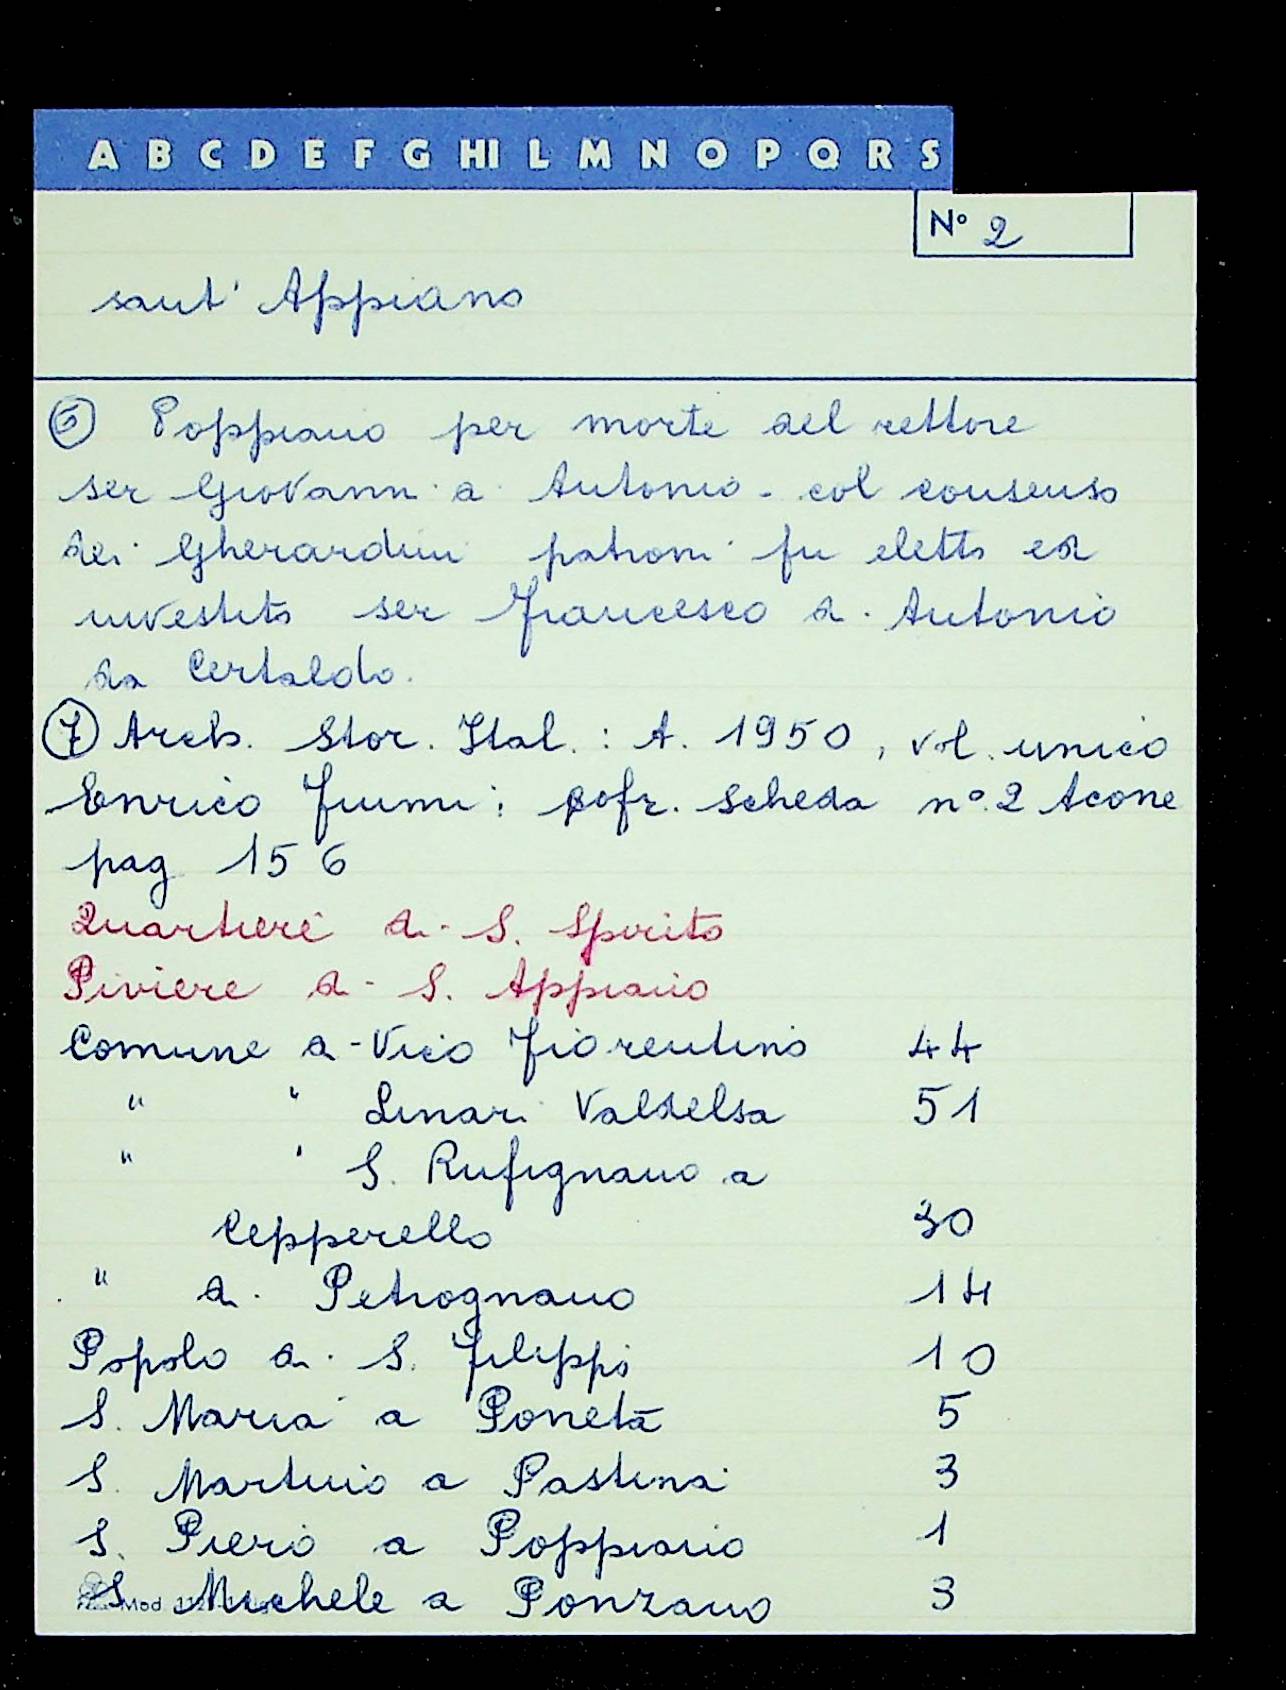 A B C D E F G HI L M N O P Q R S
N° 2
sant' Appiano
⑥ Poppiano per morte del rettore
ser Giovanni di Antonio - col consenso
dei Gherardini patroni fu eletto ed
investito ser Francesco di Antonio
da Certaldo.
⑦ Arch. Stor. Ital. : A. 1950, vol. unico
Enrico Fiumi: cofr. scheda n° 2 Acone
pag 156
Quartiere di S. Spirito
Piviere di S. Appiano
Comune di Vico Fiorentino 44
" " Linari Valdelsa 51
" " S. Rufignano a
Cepperello 30
" di Petrognano 14
Popolo di S. Filippo 10
S. Maria a Poneta 5
S. Martino a Pastina 3
S. Piero a Poppiano 1
S. Michele a Ponzano 3
Mod